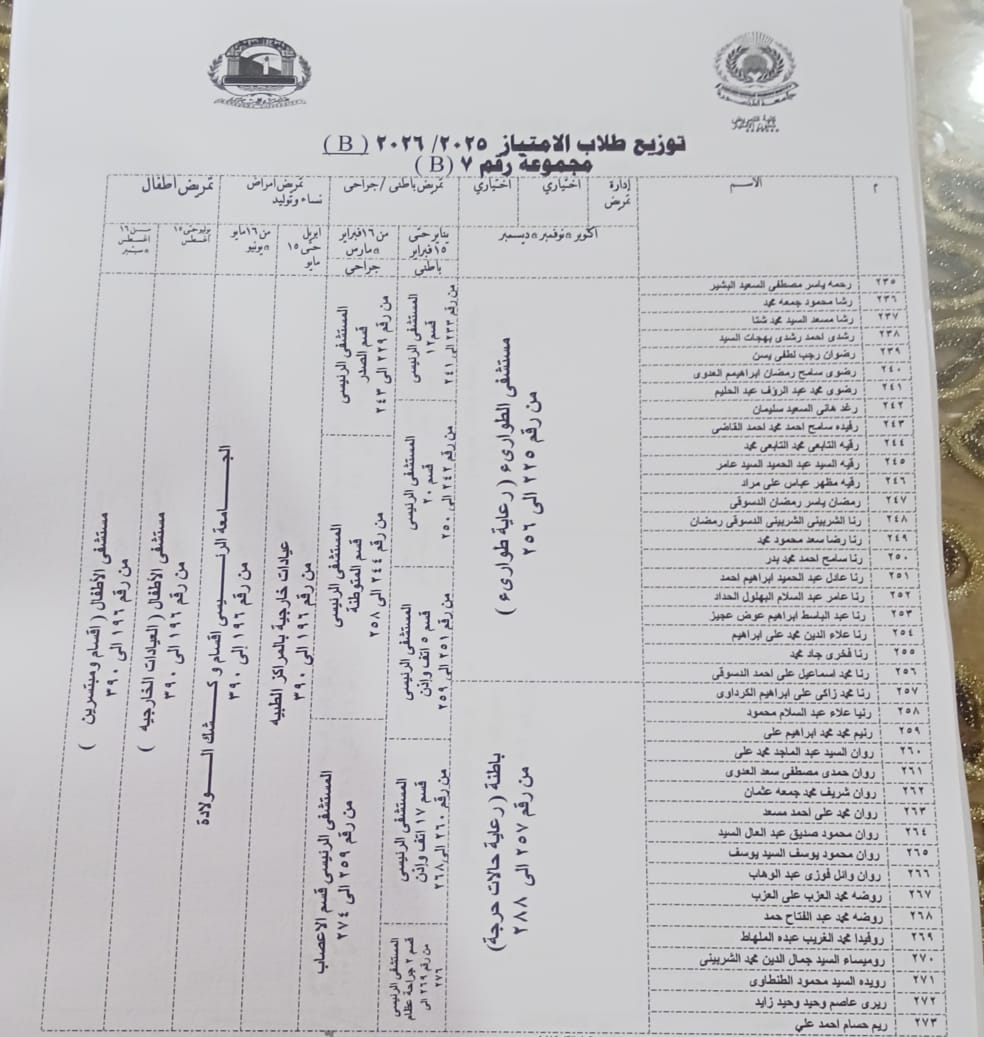 كلية التمريض
توزيع طلاب الامتياز ٢٠٢٥/ ٢٠٢٦ ( B )
مجموعة رقم ٧ ( B )
م
الاسم
إدارة تمريض
اختياري
اختياري
تمريض باطنى / جراحى
تمريض امراض نساء وتوليد
تمريض اطفال
اكتوبر n نوفمبر n ديسمبر
يناير حتى ١٥ فبراير
من ١٦ فبراير n مارس
ابريل حتى ١٥ مايو
من ١٦ مايو n يونيو
يوليو حتى ١٥ اغسطس
من ١٦ اغسطس n سبتمبر
باطنى
جراحى
٢٣٥ رحمه ياسر مصطفى السعيد البشير
٢٣٦ رشا محمود جمعه محمد
٢٣٧ رشا مسعد السيد محمد شتا
٢٣٨ رشدى احمد رشدى بهجات السيد
٢٣٩ رضوان رجب لطفى يسن
٢٤٠ رضوى سامح رمضان ابراهيم العدوى
٢٤١ رضوى محمد عبد الرؤف عبد الحليم
٢٤٢ رغد هانى السعيد سليمان
٢٤٣ رفيده سامح احمد محمد احمد القاضى
٢٤٤ رقيه التابعى محمد التابعى محمد
٢٤٥ رقيه السيد عبد الحميد السيد عامر
٢٤٦ رقيه مظهر عباس على مراد
٢٤٧ رمضان ياسر رمضان الدسوقى
٢٤٨ رنا الشربينى الشربينى الدسوقى رمضان
٢٤٩ رنا رضا سعد محمود محمد
٢٥٠ رنا سامح احمد محمد بدر
٢٥١ رنا عادل عبد الحميد ابراهيم احمد
٢٥٢ رنا عامر عبد السلام البهلول الحداد
٢٥٣ رنا عبد الباسط ابراهيم عوض عجيز
٢٥٤ رنا علاء الدين محمد على ابراهيم
٢٥٥ رنا فخرى جاد محمد
٢٥٦ رنا محمد اسماعيل على احمد الدسوقى
٢٥٧ رنا محمد زاكى على ابراهيم الكرداوى
٢٥٨ رنيا علاء عبد السلام محمود
٢٥٩ رنيم محمد محمد ابراهيم على
٢٦٠ روان السيد عبد الماجد محمد على
٢٦١ روان حمدى مصطفى سعد العدوى
٢٦٢ روان شريف محمد جمعه عثمان
٢٦٣ روان محمد على احمد مسعد
٢٦٤ روان محمود صديق عبد العال السيد
٢٦٥ روان محمود يوسف السيد يوسف
٢٦٦ روان وائل فوزى عبد الوهاب
٢٦٧ روضه محمد العزب على العزب
٢٦٨ روضه محمد عبد الفتاح حمد
٢٦٩ روفيدا محمد الغريب عبده الملهاط
٢٧٠ روميساء السيد جمال الدين محمد الشربينى
٢٧١ رويده السيد محمود الطنطاوى
٢٧٢ ريرى عاصم وحيد وحيد زايد
٢٧٣ ريم حسام احمد علي
مستشفى الطوارىء ( رعاية طوارىء )
من رقم ٢٢٥ الى ٢٥٦
باطنة ( رعاية حالات حرجة)
من رقم ٢٥٧ الى ٢٨٨
المستشفى الرئيسى
قسم ١٢
من رقم ٢٣٣ الى ٢٤١
المستشفى الرئيسى
قسم ٢٠
من رقم ٢٤٢ الى ٢٥٠
المستشفى الرئيسى
قسم ٥ انف واذن
من رقم ٢٥١ الى ٢٥٩
المستشفى الرئيسى
قسم ١٧ انف واذن
من رقم ٢٦٠ الى ٢٦٨
المستشفى الرئيسى
قسم ٢ جراحة عظام
من رقم ٢٦٩ الى ٢٧٦
المستشفى الرئيسى
قسم الصدر
من رقم ٢٢٩ الى ٢٤٣
المستشفى الرئيسى
قسم المتوطنة
من رقم ٢٤٤ الى ٢٥٨
المستشفى الرئيسى قسم الاعصاب
من رقم ٢٥٩ الى ٢٧٤
عيادات خارجية بالمراكز الطبيه
من رقم ١٩٦ الى ٣٩٠
الجامعة الرئيسى اقسام و كشك الولادة
من رقم ١٩٦ الى ٣٩٠
مستشفى الأطفال ( العيادات الخارجيه )
من رقم ١٩٦ الى ٣٩٠
مستشفى الأطفال ( اقسام ومبتسرين )
من رقم ١٩٦ الى ٣٩٠